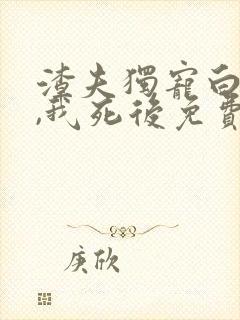 渣夫獨寵白
,我死後免費
庚欣